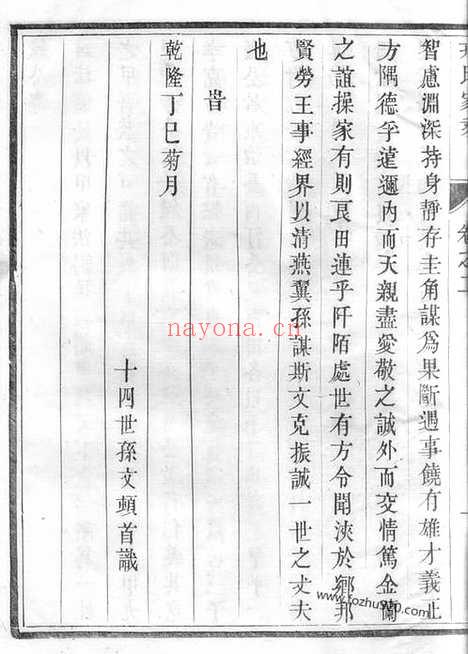 智慮淵深持身靜存圭角謀爲果斷遇事饒有雄才義正
方隅德孚遠邇內而天親盡愛敬之誠外而交情篤金蘭
之誼操家有則良田連乎阡陌處世有方令聞浹於鄉邦
賢勞王事經界以清燕翼孫謀斯文克振誠一世之丈夫
也
旹
乾隆丁巳菊月
十四世孫文頓首識
nayona.cn
www.fozhu920.com